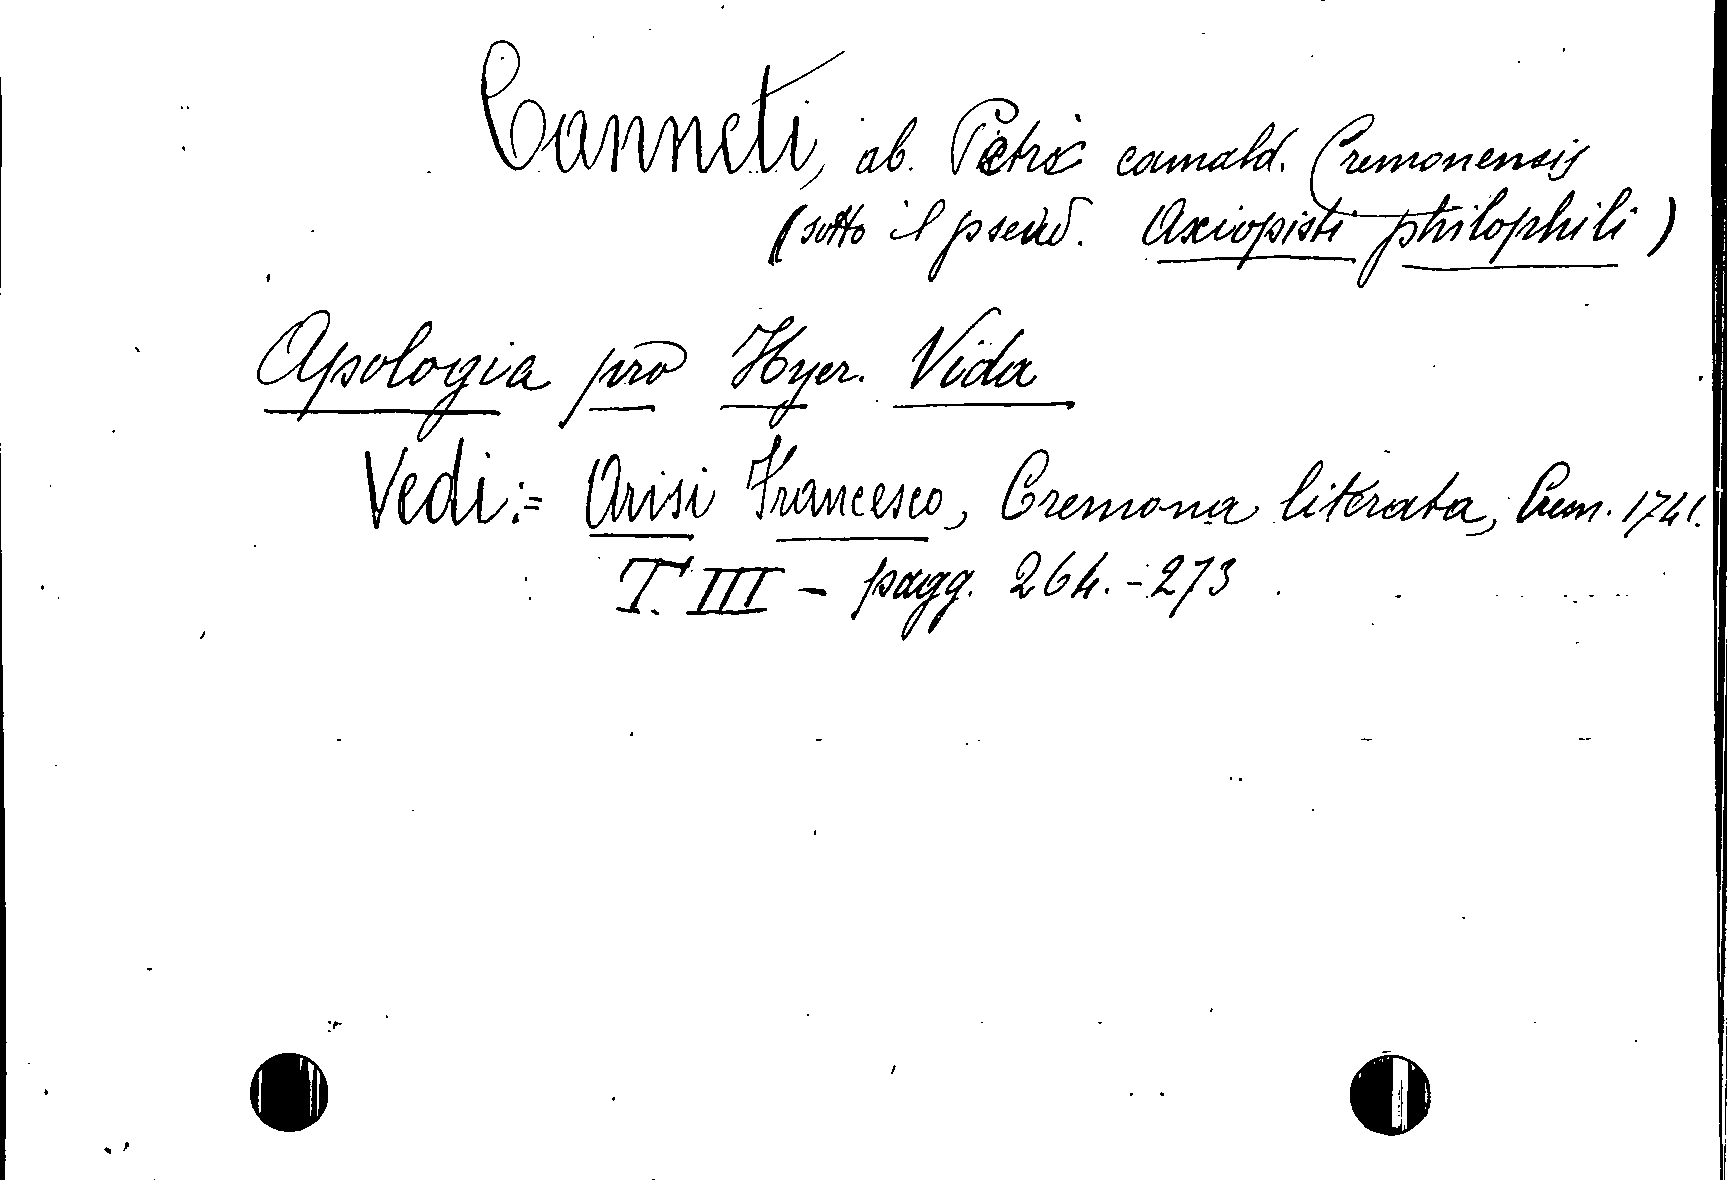 Canneti, ab. Petri camald. Cremonensis
(sotto il pseud. Axiopisti philophili)
Apologia pro Hyer. Vida
Vedi:= Arisi Francesco, Cremona literata, Crem. 1741.
T. III - pagg. 264.-273